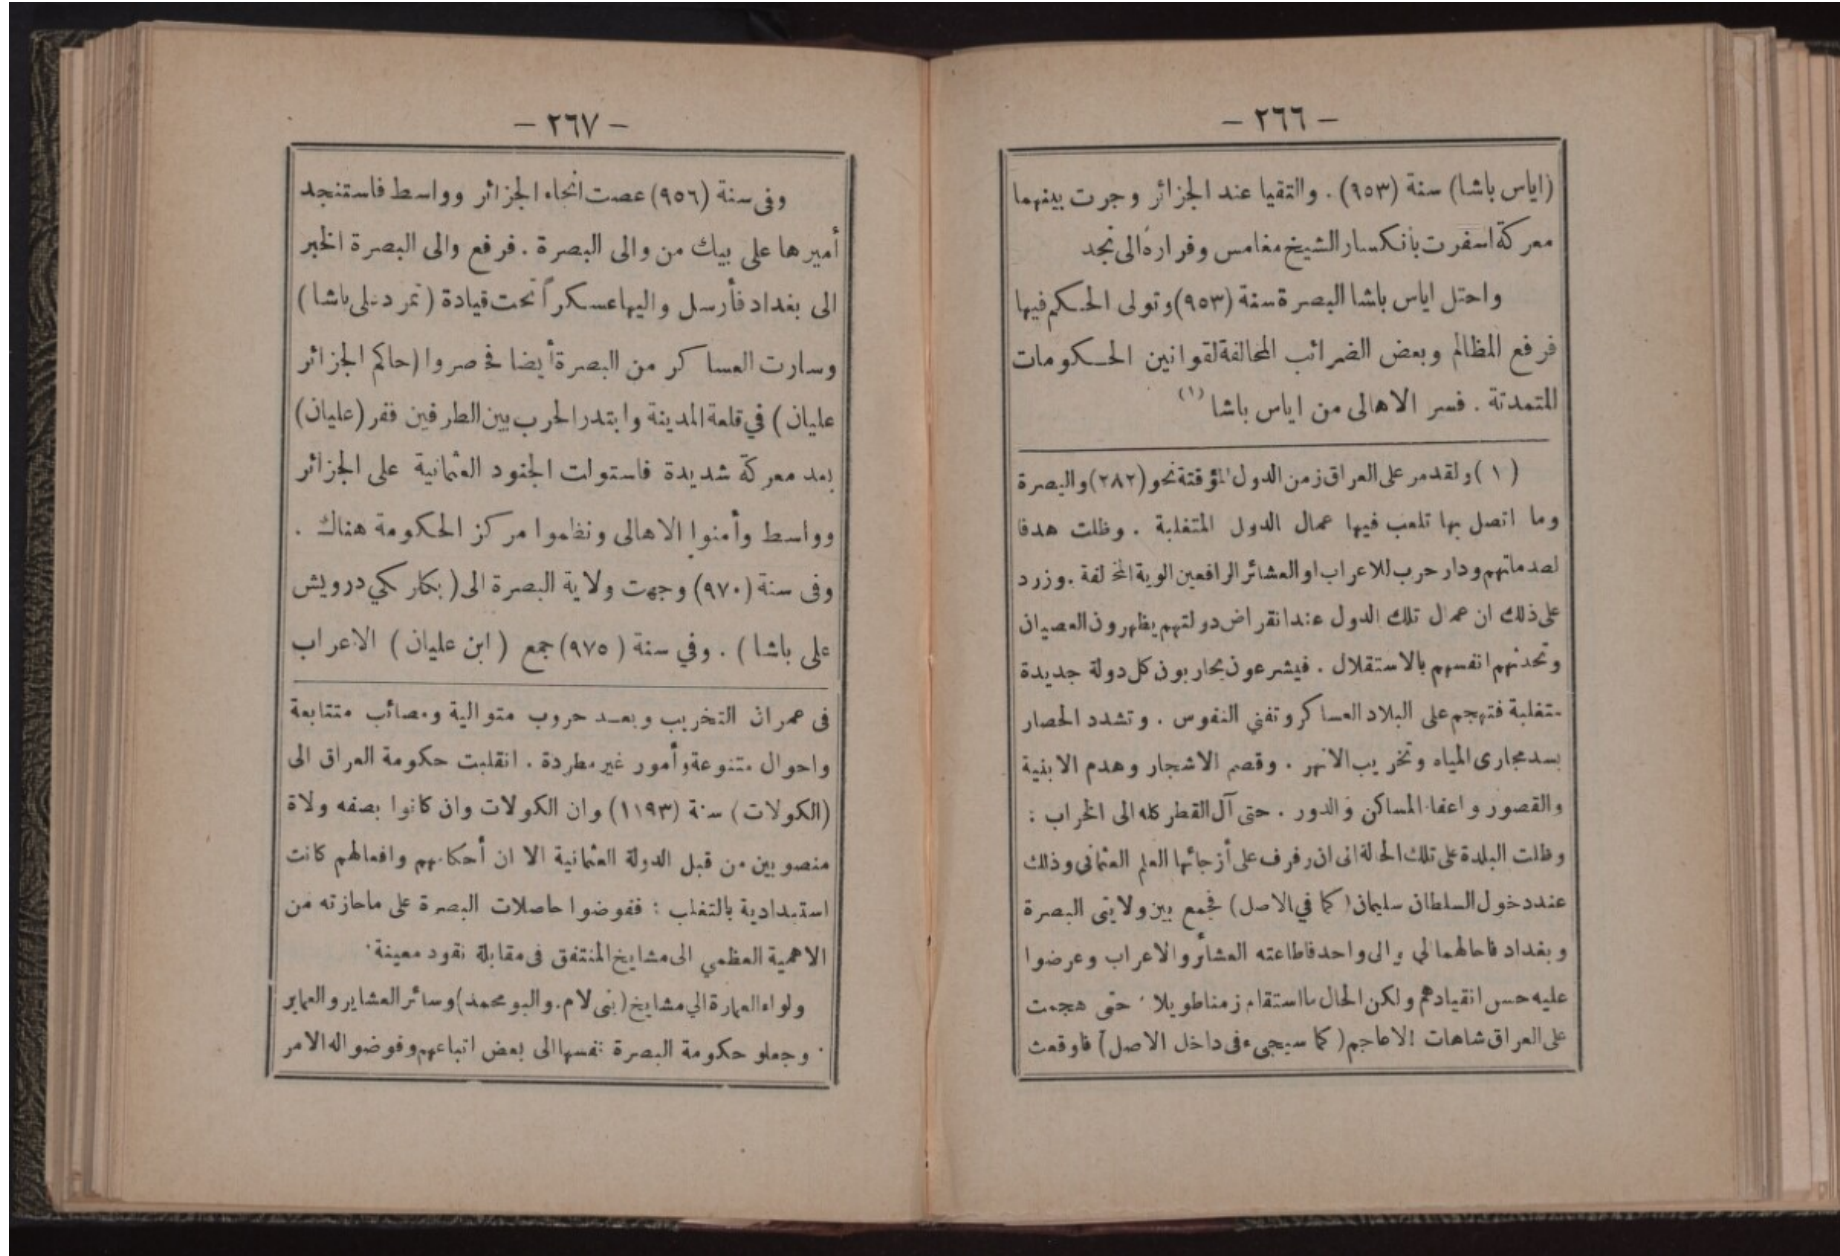 — ٢٦٦ —
(اياس باشا) سنة (٩٥٣) . والتقيا عند الجزائر وجرت بينهما
معركة اسفرت بانكسار الشيخ مغامس وفراره الى نجد
واحتل اياس باشا البصرة سنة (٩٥٣) وتولى الحكم فيها
فرفع المظالم وبعض الضرائب المخالفة لقوانين الحكومات
المتمدنة . فسر الاهالى من اياس باشا (١)
(١) ولقد مر على العراق زمن الدول المؤقتة نحو (٢٨٢) والبصرة
وما اتصل بها تلعب فيها عمال الدول المتغلبة . وظلت هدفا
لصدماتهم ودار حرب للاعراب او العشائر الرافعين الوية المخالفة . وزد
على ذلك ان عمال تلك الدول عند انقراض دولتهم يظهرون العصيان
وتحدثهم انفسهم بالاستقلال . فيشرعون يحاربون كل دولة جديدة
متغلبة فتهجم على البلاد العساكر وتفني النفوس . وتشدد الحصار
بسد مجارى المياه وتخريب الانهر . وقصم الاشجار وهدم الابنية
والقصور واعفاء المساكن والدور . حتى آل القطر كله الى الخراب :
وظلت البلدة على تلك الحالة الى ان رفرف على أرجائها العلم العثمانى وذلك
عند دخول السلطان سليمان (كما في الاصل) فجمع بين ولايتى البصرة
وبغداد فاحالهما الي والى واحد فاطاعته العشائر والاعراب وعرضوا
عليه حسن انقيادهم ولكن الحال ما استقام زمنا طويلا ٠ حتى هجمت
على العراق شاهات الاعاجم (كما سيجىء فى داخل الاصل) فاوقعت
— ٢٦٧ —
وفى سنة (٩٥٦) عصت انحاء الجزائر وواسط فاستنجد
أميرها على بيك من والى البصرة . فرفع والى البصرة الخبر
الى بغداد فأرسل واليها عسكراً تحت قيادة (تمرد على باشا)
وسارت العساكر من البصرة أيضا فحصروا (حاكم الجزائر
عليان) في قلعة المدينة وابتدر الحرب بين الطرفين ففر (عليان)
بعد معركة شديدة فاستولت الجنود العثمانية على الجزائر
وواسط وأمنوا الاهالى ونظموا مركز الحكومة هناك .
وفى سنة (٩٧٠) وجهت ولاية البصرة الى (بكلر بكي درويش
على باشا) . وفي سنة (٩٧٥) جمع (ابن عليان) الاعراب
فى عمران التخريب وبعد حروب متوالية ومصائب متتابعة
واحوال متنوعة وأمور غير مطردة . انقلبت حكومة العراق الى
(الكولات) سنة (١١٩٣) وان الكولات وان كانوا بصفه ولاة
منصوبين من قبل الدولة العثمانية الا ان أحكامهم وافعالهم كانت
استبدادية بالتغلب : ففوضوا حاصلات البصرة على ماحازته من
الاهمية العظمي الى مشايخ المنتفق فى مقابلة نقود معينة ٠
ولواء العمارة الي مشايخ (بنى لام . والبو محمد) وسائر العشاير والعماير
٠ وجعلو حكومة البصرة نفسها الى بعض اتباعهم وفوضوا له الامر